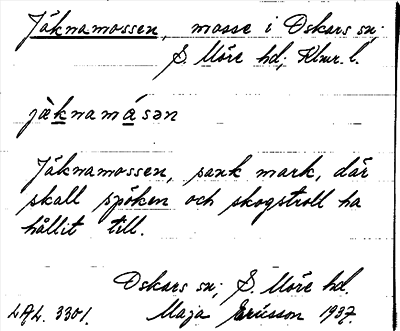 Jäknamossen, mosse i Oskars sn;
S. Möre hd; Klmr. l.
jäknamásən
Jäknamossen, sank mark, där
skall spöken och skogstroll ha
hållit till.
Oskars sn; S. Möre hd.
LAL. 3301. Maja Ericsson 1937.